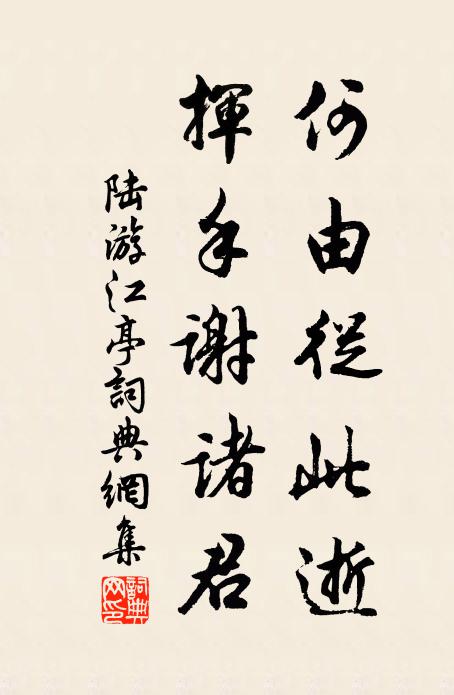 何由從此逝
揮手謝諸君
陆游江亭詞典網集
詞典网印